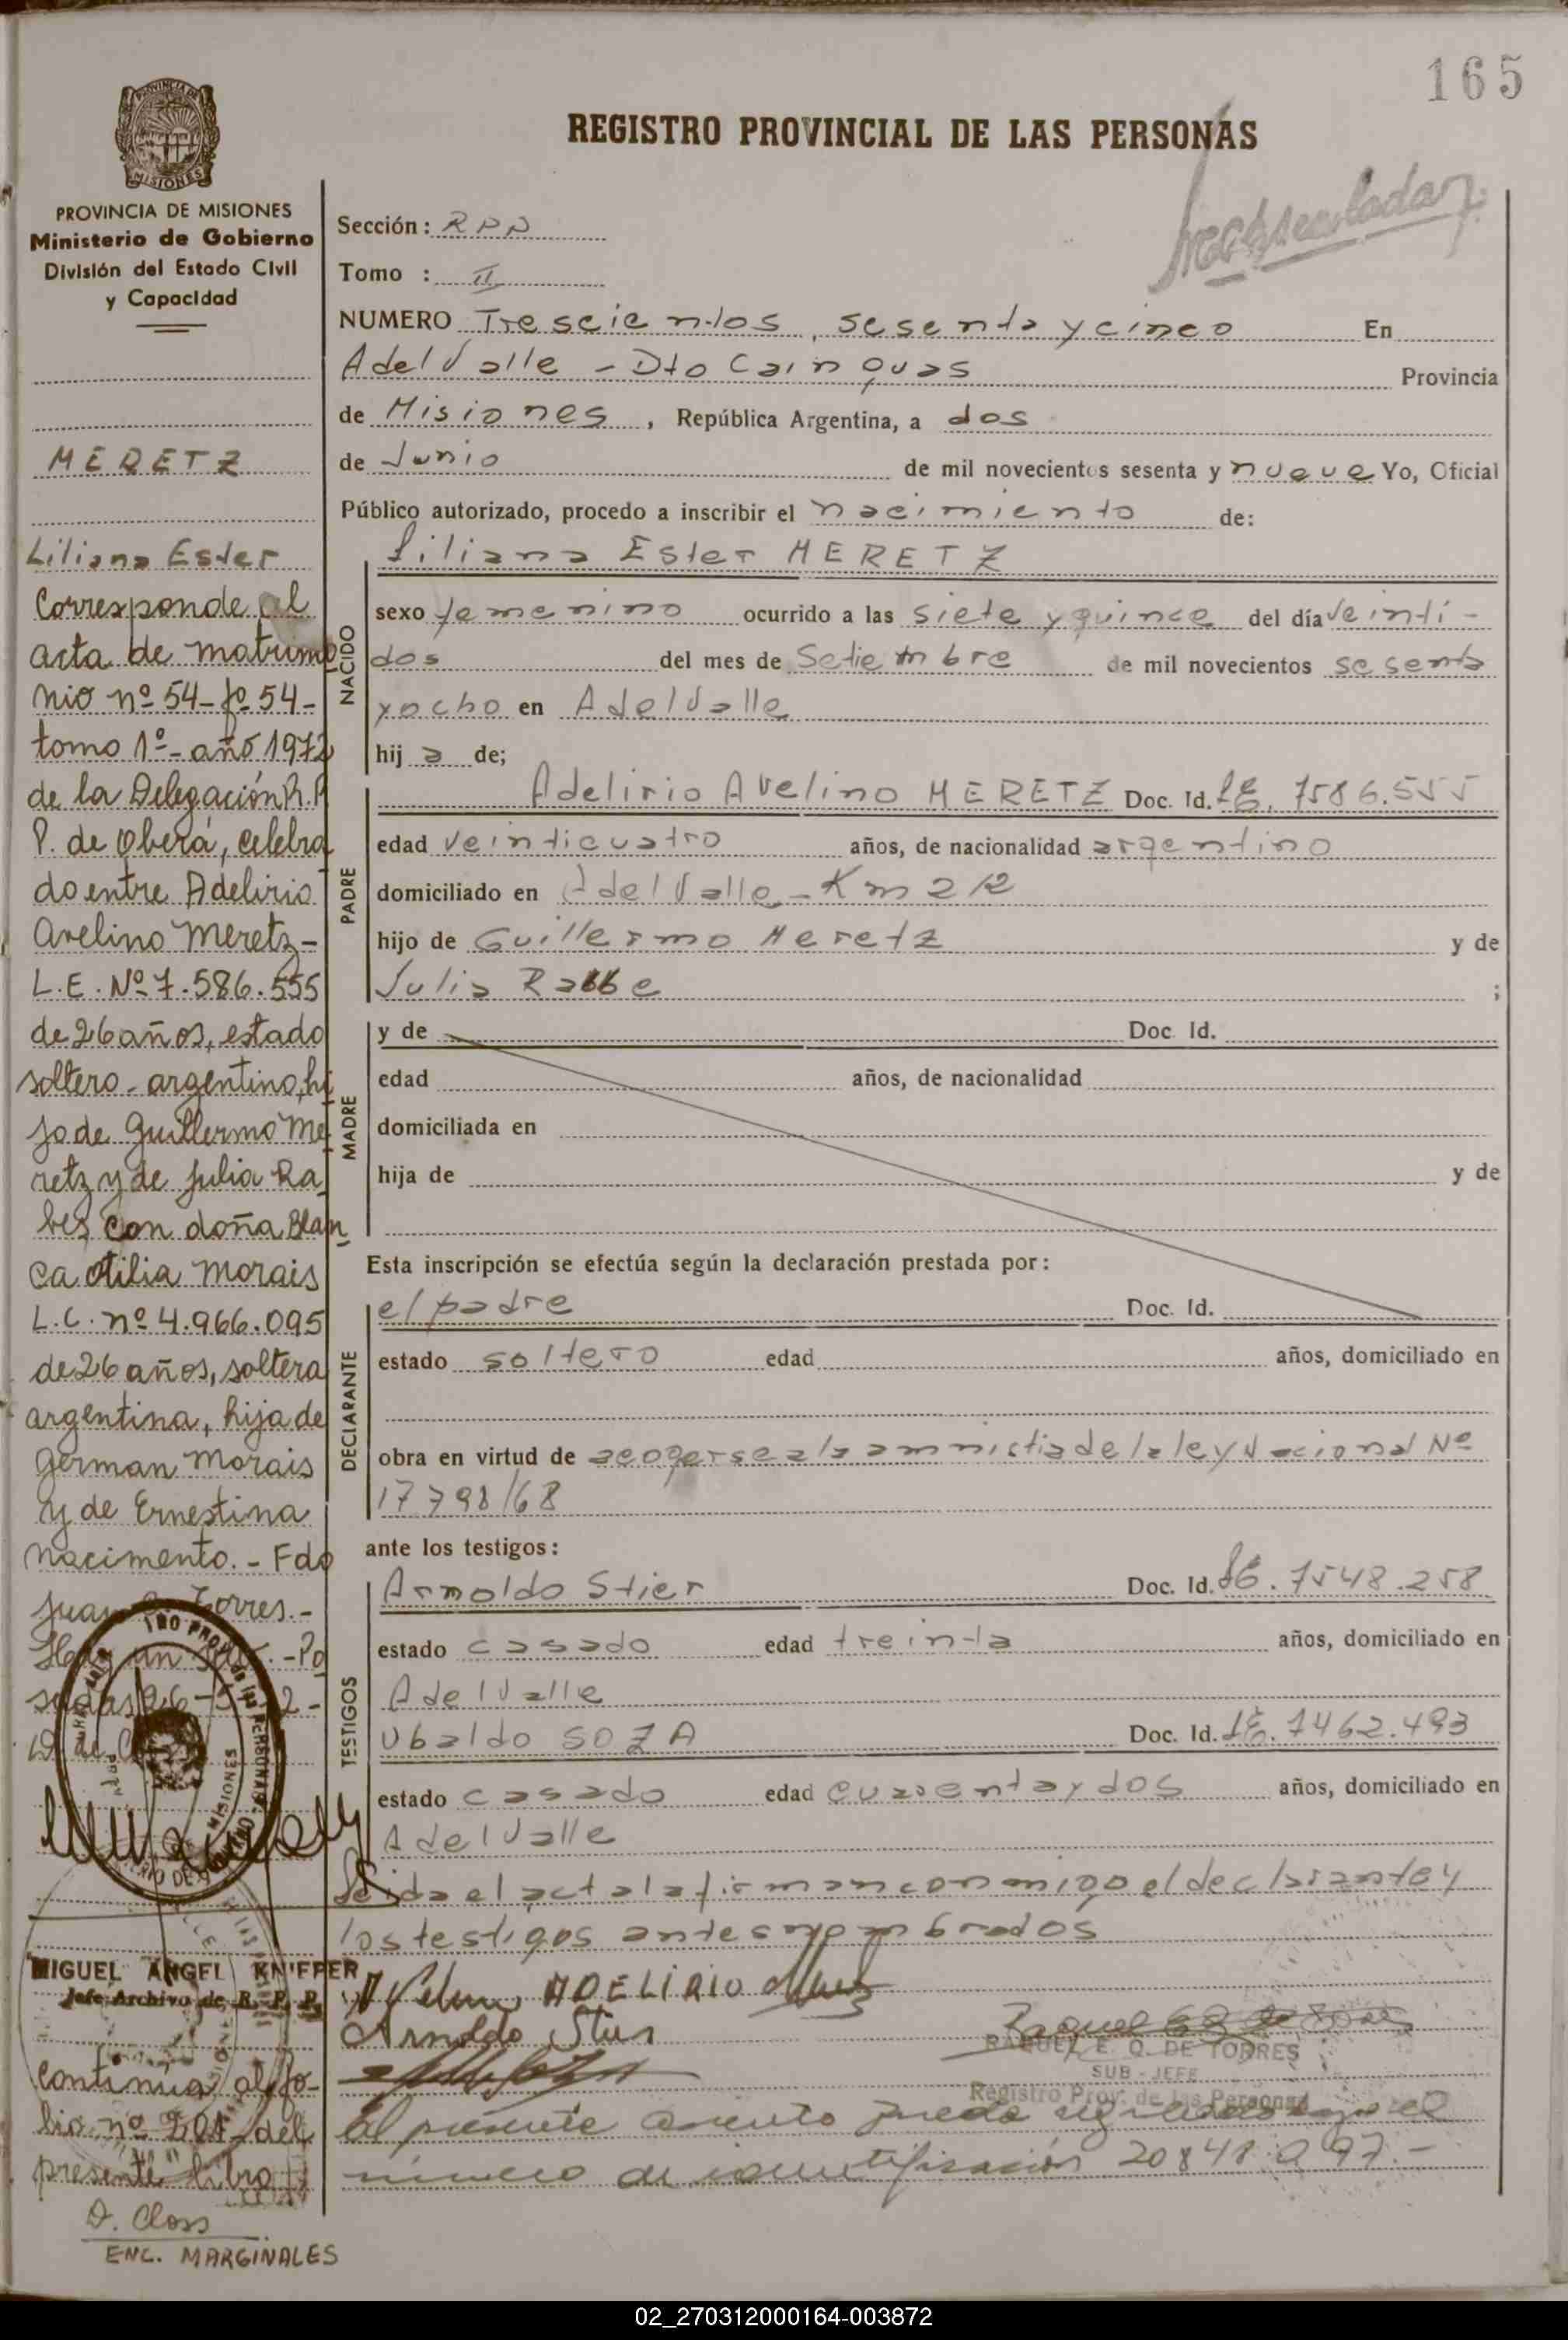 165
REGISTRO PROVINCIAL DE LAS PERSONAS
PROVINCIA DE MISIONES
Ministerio de Gobierno
División del Estado Civil
y Capacidad
MERETZ
Liliana Ester
Corresponde al
acta de matrimo
nio nº 54 - fº 54 -
tomo 1º - año 1972
de la Delegación R.P.
P. de Oberá, celebra
do entre Adelirio
Avelino Meretz -
L.E. Nº 7.586.555
de 26 años, estado
soltero - argentino, hi
jo de Guillermo Me
retz y de Julia Ra
bes con doña Blan
ca Otilia Morais
L.C. nº 4.966.095
de 26 años, soltera
argentina, hija de
German Morais
y de Ernestina
Nacimento. - Fdo
Juan Torres. -
Hay un - Po
sadas 26 -
MIGUEL ANGEL KNIEPER
Jefe Archivo de R. P. P.
Continúa al fo-
lio nº 201 del
presente libro
D. Closs
ENC. MARGINALES
Sección: RPP
Tomo : II
NUMERO Trescientos, sesenta y cinco En
A del Valle - Dto Cainguas Provincia
de Misiones, República Argentina, a dos
de Junio de mil novecientos sesenta y nueve Yo, Oficial
Público autorizado, procedo a inscribir el nacimiento de:
NACIDO
Liliana Ester MERETZ
sexo femenino ocurrido a las siete y quince del día veinti-
dos del mes de Setiembre de mil novecientos sesenta
y ocho en A del Valle
hij a de;
PADRE
Adelirio Avelino MERETZ Doc. Id. LE. 7586.555
edad veinticuatro años, de nacionalidad argentino
domiciliado en A del Valle - Km 212
hijo de Guillermo Meretz y de
Julia Rabbe ;
MADRE
y de Doc. Id.
edad años, de nacionalidad
domiciliada en
hija de y de
Esta inscripción se efectúa según la declaración prestada por:
DECLARANTE
el padre Doc. Id.
estado soltero edad años, domiciliado en
obra en virtud de acogerse a la amnistia de la ley Nacional Nº
17798/68
ante los testigos:
TESTIGOS
Arnoldo Stier Doc. Id. LE. 7548.258
estado casado edad treinta años, domiciliado en
A del Valle
Ubaldo SOZA Doc. Id. LE. 7462.493
estado casado edad cuarenta y dos años, domiciliado en
A del Valle
Leida el acta la firman conmigo el declarante y
los testigos antes nombrados
ADELIRIO
Arnoldo Stier
RAQUEL E. Q. DE TORRES
SUB - JEFE
Registro Prov. de las Personas
El presente asiento queda bajo el
número de identificación 20841
02_270312000164-003872